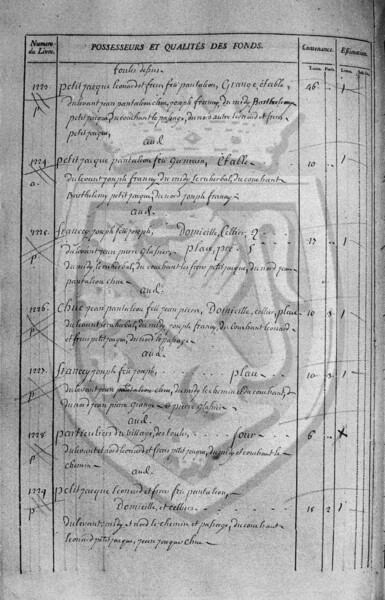 Numero du Livre. POSSESSEURS ET QUALITÉS DES FONDS. Contenance. Estimation.
Toules dessus
1223. petit jacque leonard et freres feu pantaleon, Grange, étable, 46 1
du levant jean pantaleon chuc, joseph francey, du midy Barthelemy
petit jacque, du couchant le passage, du nord autre leonard et freres
petit jacque,
aud
1224 petit jacque pantaleon feu Germain, Étable 10 1
du levant joseph francey du midy le ruherbal, du couchant
Barthelemy petit jacque, du nord joseph francey
aud.
1225. francey joseph feu joseph, Domicille, Cellier, 2
du levant jean pierre glassier place, pré 5 17 1
du midy le ruherbal, du couchant les freres petit jacque, du nord jean
pantaleon chuc
aud.
1226. Chuc jean pantaleon feu jean pierre, Domicille, cellier, place 10 1
du levant le ruherbal, du midy joseph francey, du couchant leonard
et freres petit jacque, du nord le passage
aud
1227. francey joseph feu joseph, place 10 1
du levant jean pantaleon chuc, du midy le chemin et du couchant,
du nord jean pierre et pierre glassier
aud
1228 particuliers du village, des toules, four 6
du levant et nord leonard et freres petit jacque, du midy et couchant le
chemin
aud.
1229 petit jacque leonard et freres feu pantaleon,
Domicille, et cellier 18 2 1
du levant midy et nord le chemin et passage, du couchant
leonard petit jacque, jean jacque chuc